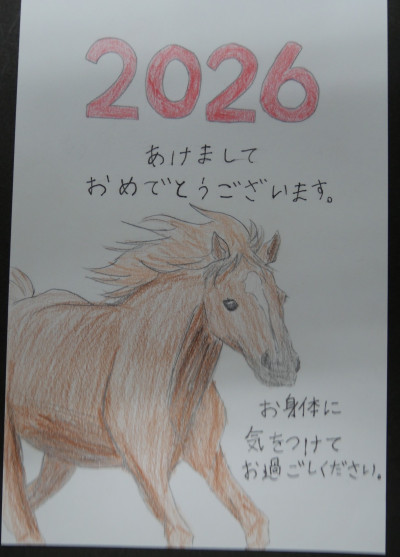 2026
あけまして
おめでとうございます。
お身体に
気をつけて
お過ごしください。